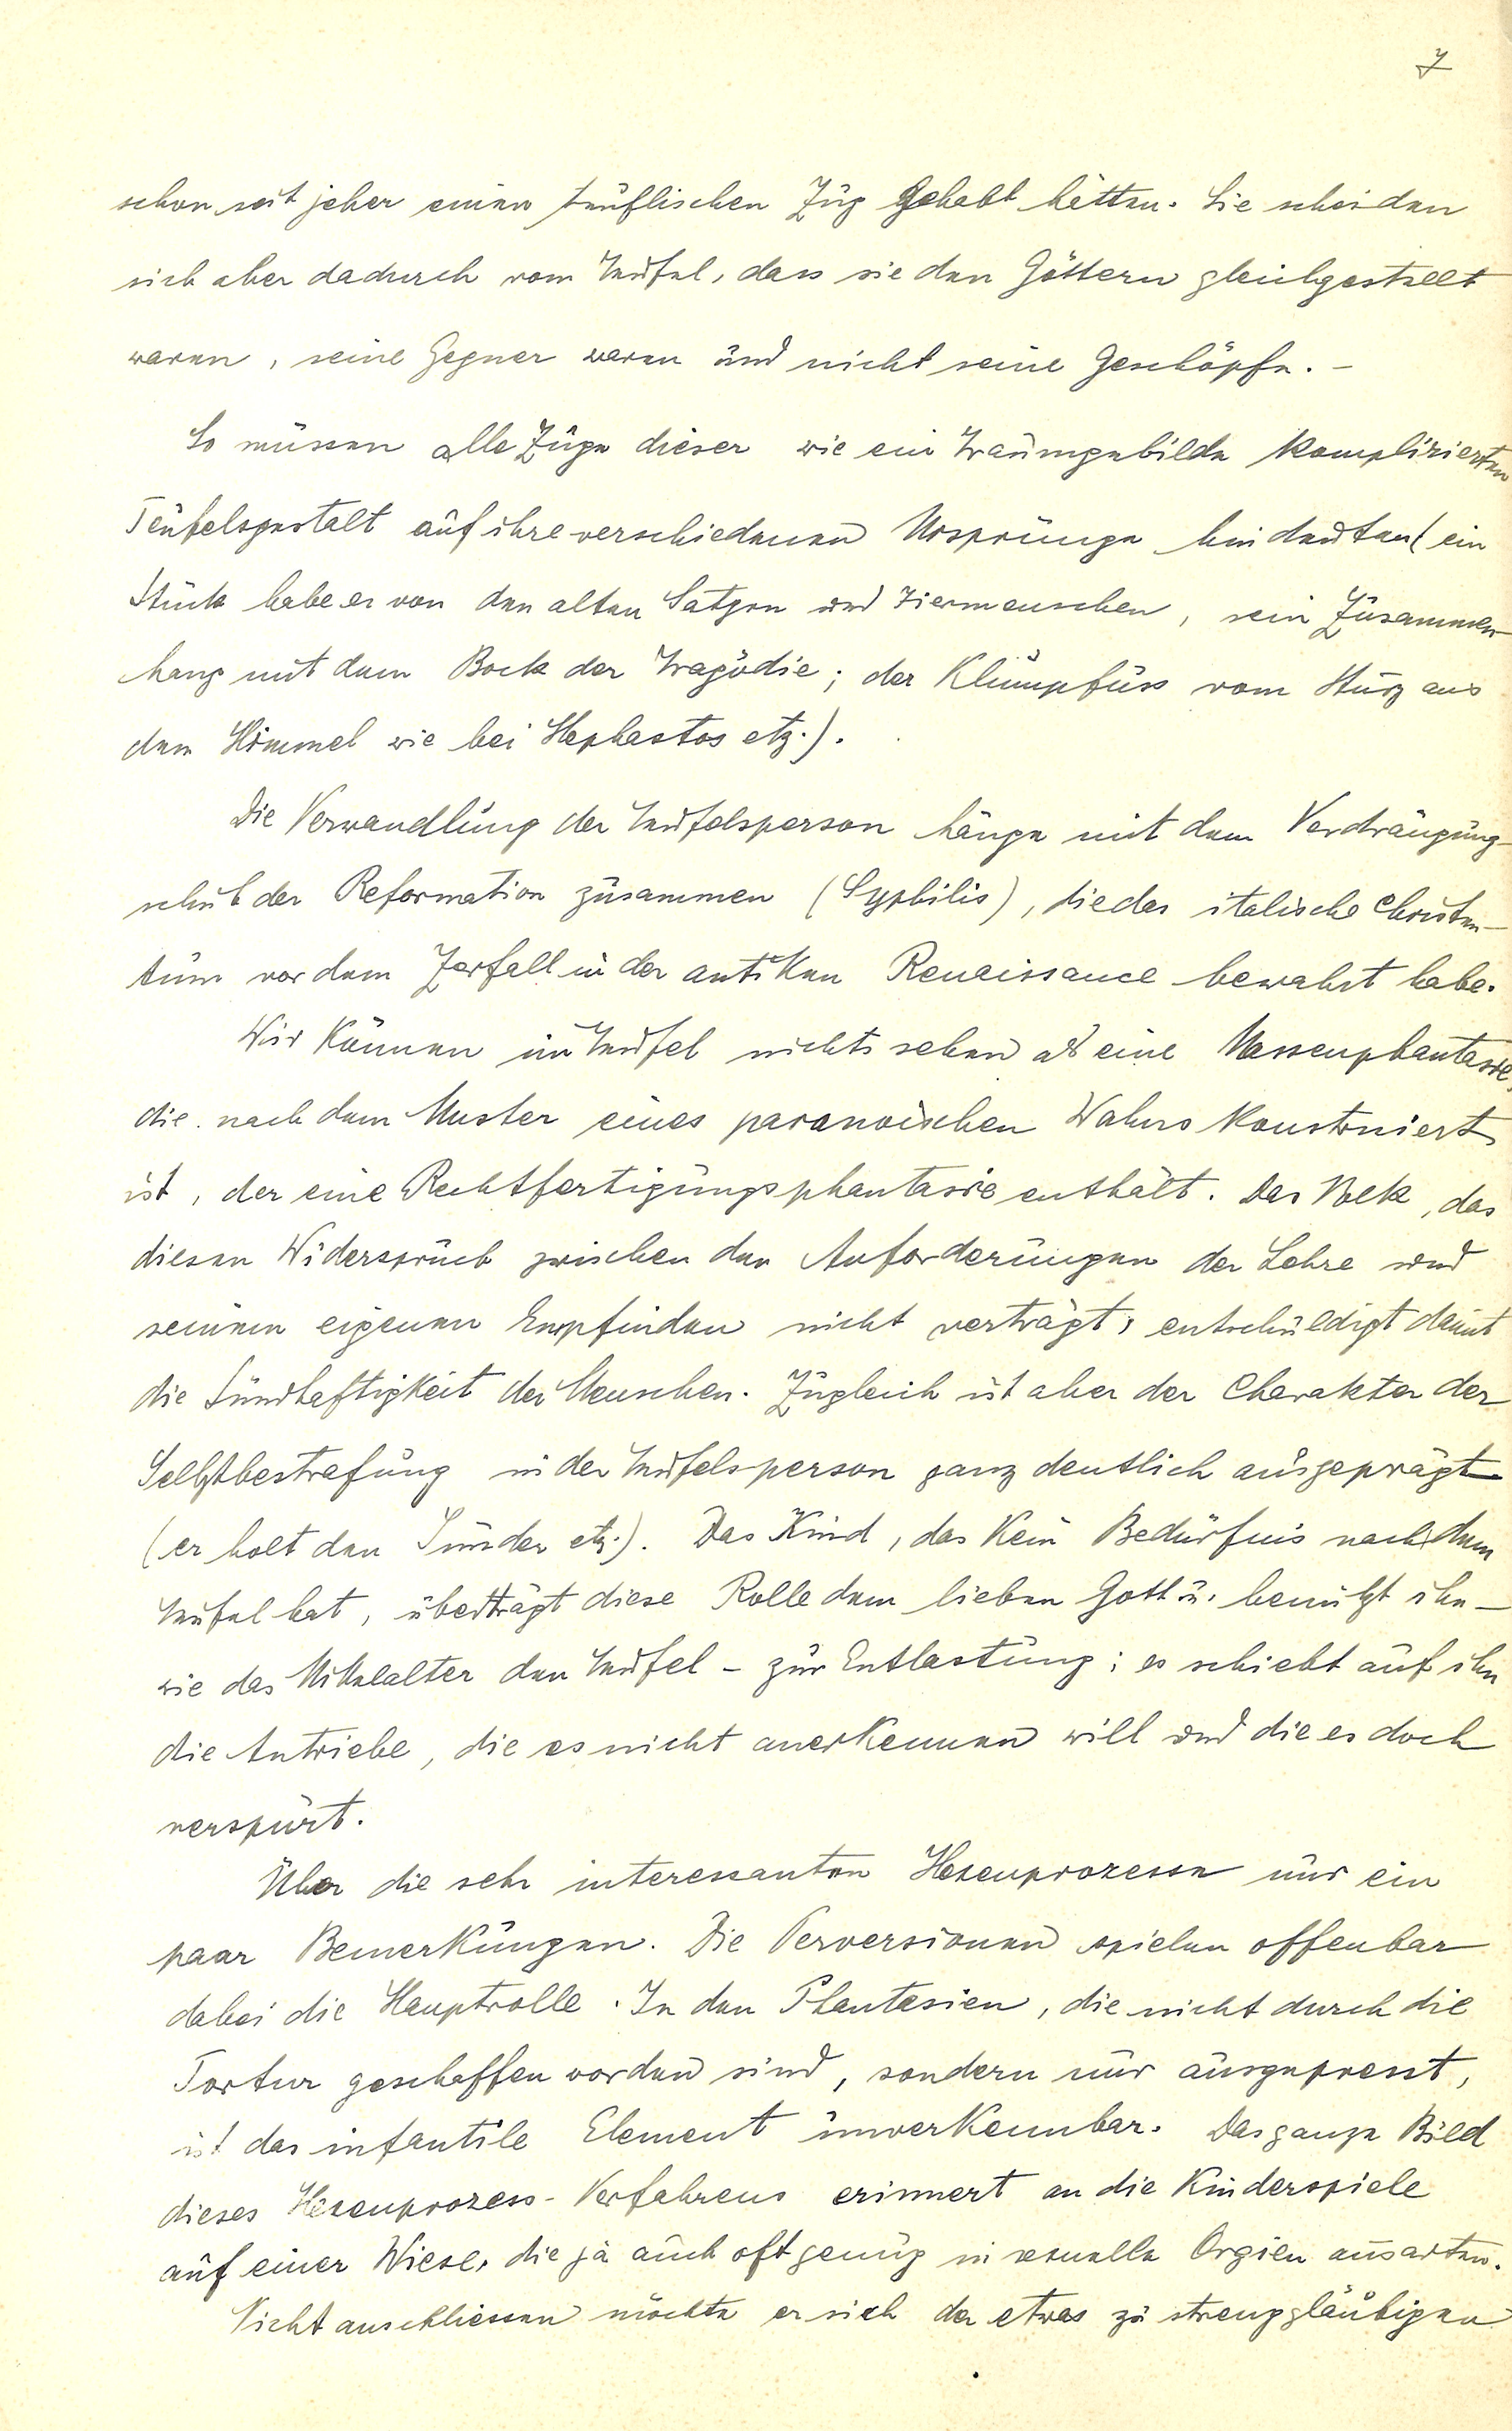 7
schon seit jeher einen teuflischen Zug gehabt hätten. Sie scheiden
sich aber dadurch vom Teufel, dass sie den Göttern gleichgestellt
waren, seine Gegner waren und nicht seine Geschöpfe. –
So müssen alle Züge dieser wie ein Traumgebilde komplizierten
Teufelsgestalt auf ihre verschiedenen Ursprünge hindeuten (ein
Stück habe er von den alten Satyrn und Tiermenschen, sein Zusammen-
hang mit dem Bock der Tragödie; der Klumpfuss vom Sturz aus
dem Himmel wie bei Hephastos etz.).
Die Verwandlung der Teufelsperson hänge mit dem Verdrängung-
schub der Reformation zusammen (Syphilis), die das italische Christen-
tum vor dem Zerfall in der antiken Renaissance bewahrt habe.
Wir können im Teufel nichts sehen als eine Massenphantasie,
die nach dem Muster eines paranoischen Wahns konstruiert
ist, der eine Rechtfertigungsphantasie enthält. Das Volk, das
diesen Widerspruch zwischen den Anforderungen der Lehre und
seinem eigenen Empfinden nicht verträgt, entschuldigt damit
die Sündhaftigkeit der Menschen. Zugleich ist aber der Charakter der
Selbstbestrafung in der Teufelsperson ganz deutlich ausgeprägt
(er holt den Sünder etz.). Das Kind, das kein Bedürfnis nach dem
Teufel hat, überträgt diese Rolle dem lieben Gott u. benützt ihn –
wie das Mittelalter den Teufel – zur Entlastung; es schiebt auf ihn
die Antriebe, die es nicht anerkennen will und die es doch
verspürt.
Über die sehr interessanten Hexenprozesse nur ein
paar Bemerkungen. Die Perversionen spielen offenbar
dabei die Hauptrolle. In den Phantasien, die nicht durch die
Tortur geschaffen worden sind, sondern nur ausgepresst,
ist das infantile Element unverkennbar. Das ganze Bild
dieses Hexenprozess-Verfahrens erinnert an die Kinderspiele
auf einer Wiese, die ja auch oft genug in sexuelle Orgien ausarten.
Nicht anschliessen möchte er sich der etwas zu strenggläubigen